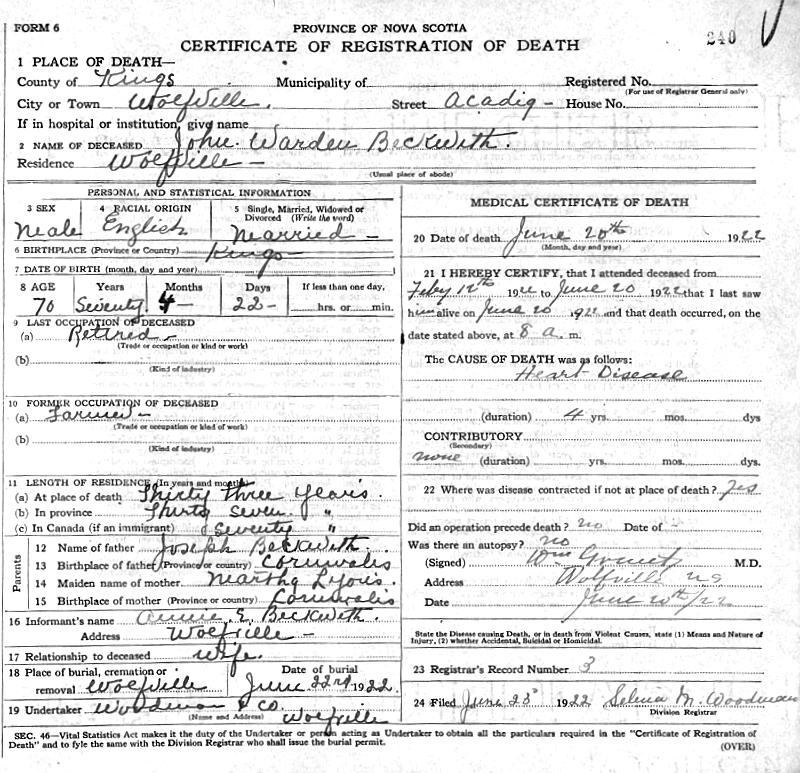 FORM 6
PROVINCE OF NOVA SCOTIA
240
CERTIFICATE OF REGISTRATION OF DEATH
1 PLACE OF DEATH—
County of Kings Municipality of Registered No.
(For use of Registrar General only)
City or Town Wolfville. Street Acadia - House No.
If in hospital or institution, give name
2 NAME OF DECEASED John Warden Beckwith.
Residence Wolfville -
(Usual place of abode)
PERSONAL AND STATISTICAL INFORMATION
3 SEX 4 RACIAL ORIGIN 5 Single, Married, Widowed or Divorced (Write the word)
Male English Married -
6 BIRTHPLACE (Province or Country) Kings
7 DATE OF BIRTH (month, day and year)
8 AGE Years Months Days If less than one day,
70 Seventy 4 - 22 - hrs. or min.
9 LAST OCCUPATION OF DECEASED
(a) Retired -
(Trade or occupation or kind or work)
(b)
(Kind of industry)
10 FORMER OCCUPATION OF DECEASED
(a) Farmer -
(Trade or occupation or kind of work)
(b)
(Kind of industry)
11 LENGTH OF RESIDENCE (In years and months)
(a) At place of death Thirty three years.
(b) In province Thirty seven. "
(c) In Canada (if an immigrant) Seventy "
Parents
12 Name of father Joseph Beckwith.
13 Birthplace of father (Province or country) Cornwalis
14 Maiden name of mother Martha Lyons.
15 Birthplace of mother (Province or country) Cornwalis
16 Informant's name Annie E. Beckwith.
Address Wolfville -
17 Relationship to deceased wife.
18 Place of burial, cremation or removal Wolfville Date of burial June 22nd 1922.
19 Undertaker Woodman & Co. Wolfville
(Name and Address)
MEDICAL CERTIFICATE OF DEATH
20 Date of death June 20th 1922
(Month, day and year)
21 I HEREBY CERTIFY, that I attended deceased from
Feby 12th 1922 to June 20 1922 that I last saw
him alive on June 20 1922 and that death occurred, on the
date stated above, at 8 a. m.
The CAUSE OF DEATH was as follows:
Heart Disease
(duration) 4 yrs. mos. dys
CONTRIBUTORY
(Secondary)
none (duration) yrs. mos. dys.
22 Where was disease contracted if not at place of death? yes
Did an operation precede death? no Date of -
Was there an autopsy? no
(Signed) M.D.
Address Wolfville NS
Date June 20th/22
State the Disease causing Death, or in death from Violent Causes, state (1) Means and Nature of
Injury, (2) whether Accidental, Suicidal or Homicidal.
23 Registrar's Record Number 3
24 Filed June 23 1922 Selina M. Woodman
Division Registrar
SEC. 46—Vital Statistics Act makes it the duty of the Undertaker or person acting as Undertaker to obtain all the particulars required in the "Certificate of Registration of
Death" and to fyle the same with the Division Registrar who shall issue the burial permit.
(OVER)